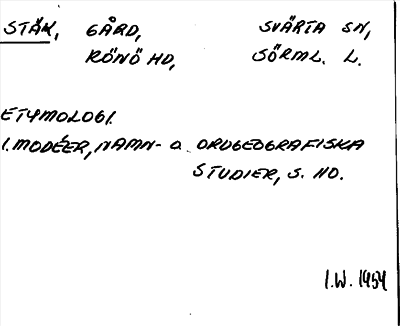 STÄK, GÅRD, SVÄRTA SN,
RÖNÖ HD, SÖRML. L.
ETYMOLOGI.
I. MODÉER, NAMN- O. ORDGEOGRAFISKA
STUDIER, S. 110.
I.W. 1954